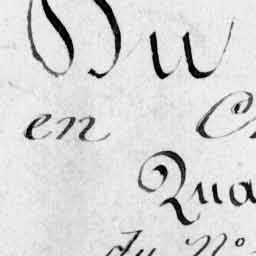 Du
en C
Qua
du Nº